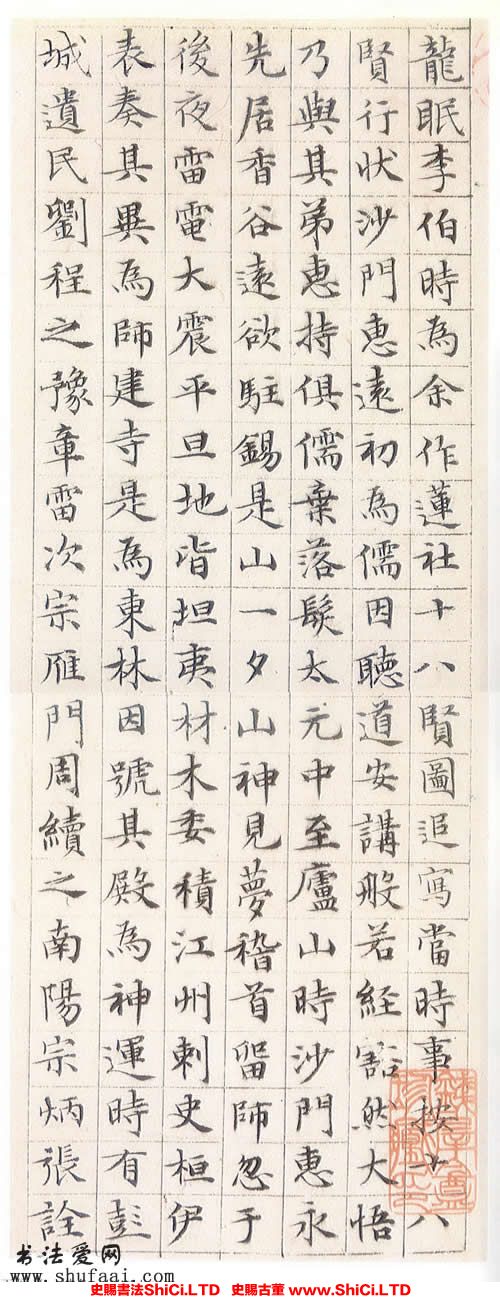 龍眠李伯時為余作蓮社十八賢圖追寫當時事按十八
賢行狀沙門惠遠初為儒因聽道安講般若經豁然大悟
乃與其弟惠持俱儒棄落髮太元中至廬山時沙門惠永
先居香谷遠欲駐錫是山一夕山神見夢稽首留師忽于
後夜雷電大震平旦地皆坦夷材木委積江州刺史桓伊
表奏其異為師建寺是為東林因號其殿為神運時有彭
城遺民劉程之豫章雷次宗雁門周續之南陽宗炳張詮
书法爱网
www.shufaai.com
史賜書法ShiCi.LTD 史賜古董 www.ShiCi.LTD